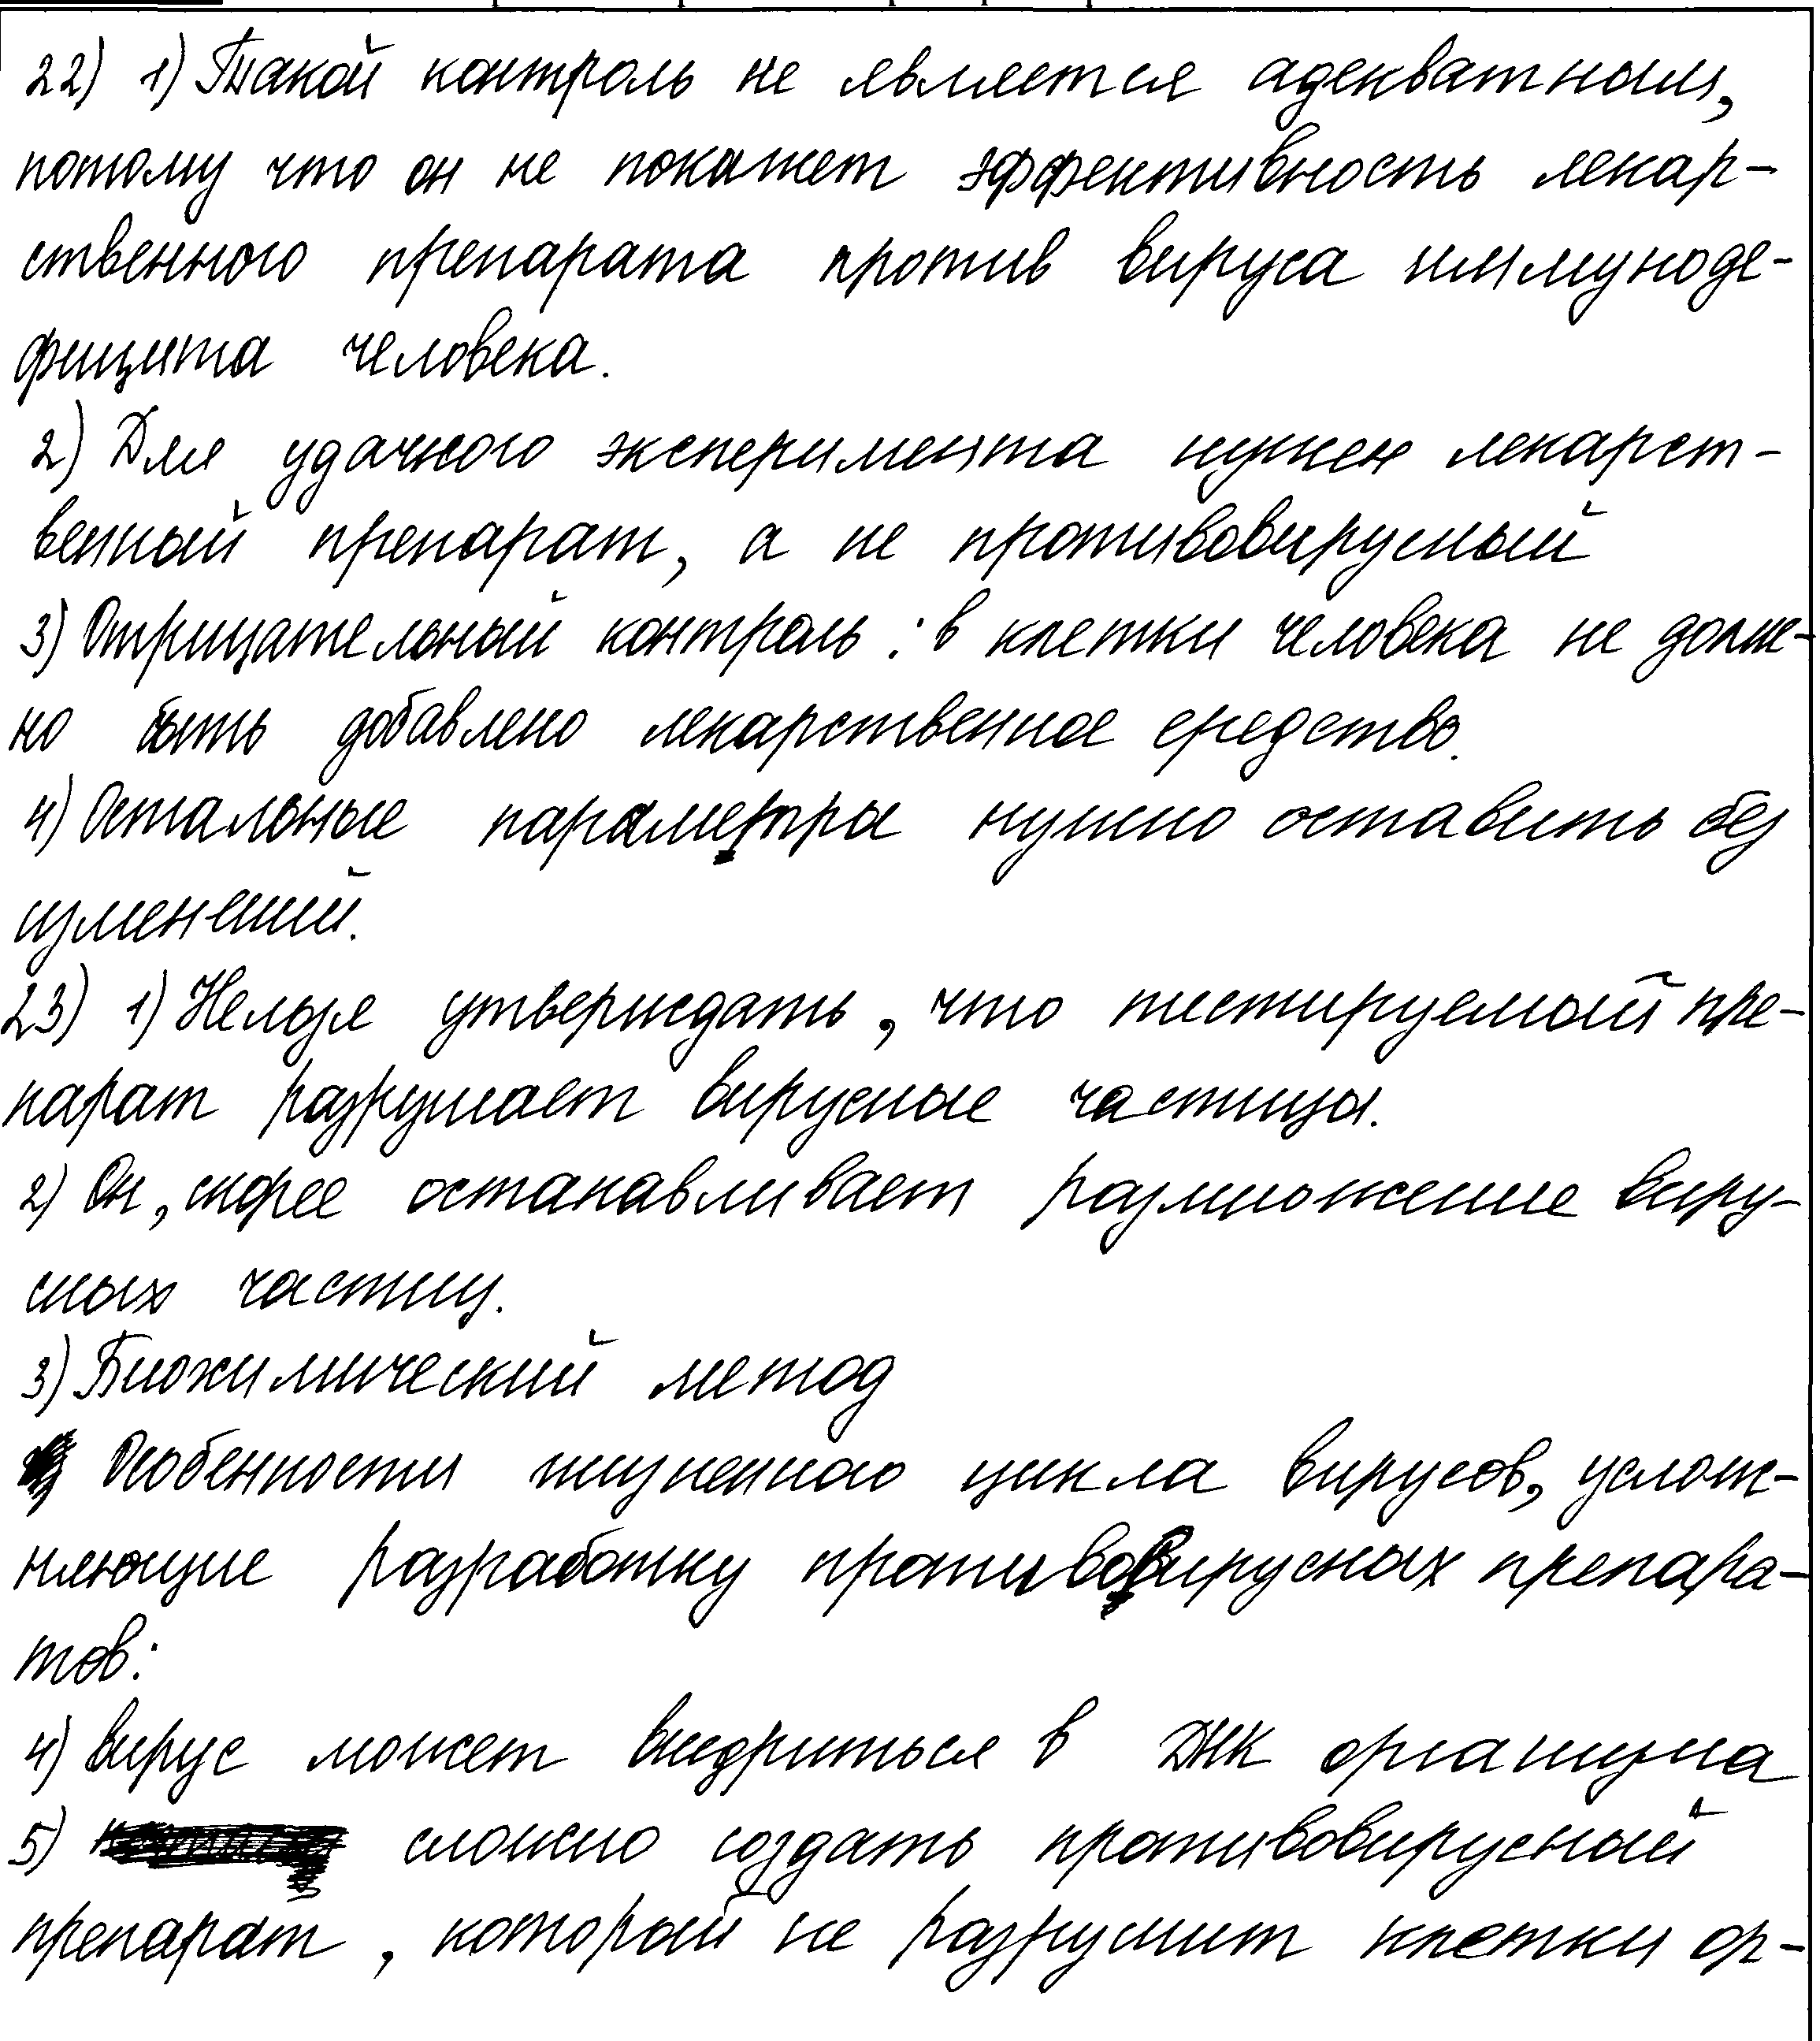 22) 1) Такой контроль не является адекватным,
потому что он не покажет эффективность лекар-
ственного препарата против вируса иммуноде-
фицита человека.
2) Для удачного эксперимента нужен лекарст-
венный препарат, а не противовирусный
3) Отрицательный контроль: в клетки человека не долж-
но быть добавлено лекарственное средство.
4) Остальные параметры нужно оставить без
изменений.
23) 1) Нельзя утверждать, что тестируемый пре-
парат разрушает вирусные частицы.
2) Он, скорее останавливает размножение виру-
сных частиц.
3) Биохимический метод
Особенности жизненного цикла вирусов, услож-
няющие разработку противовирусных препара-
тов:
4) вирус может внедриться в ДНК организма
5) сложно создать противовирусный
препарат, который не разрушит клетки ор-